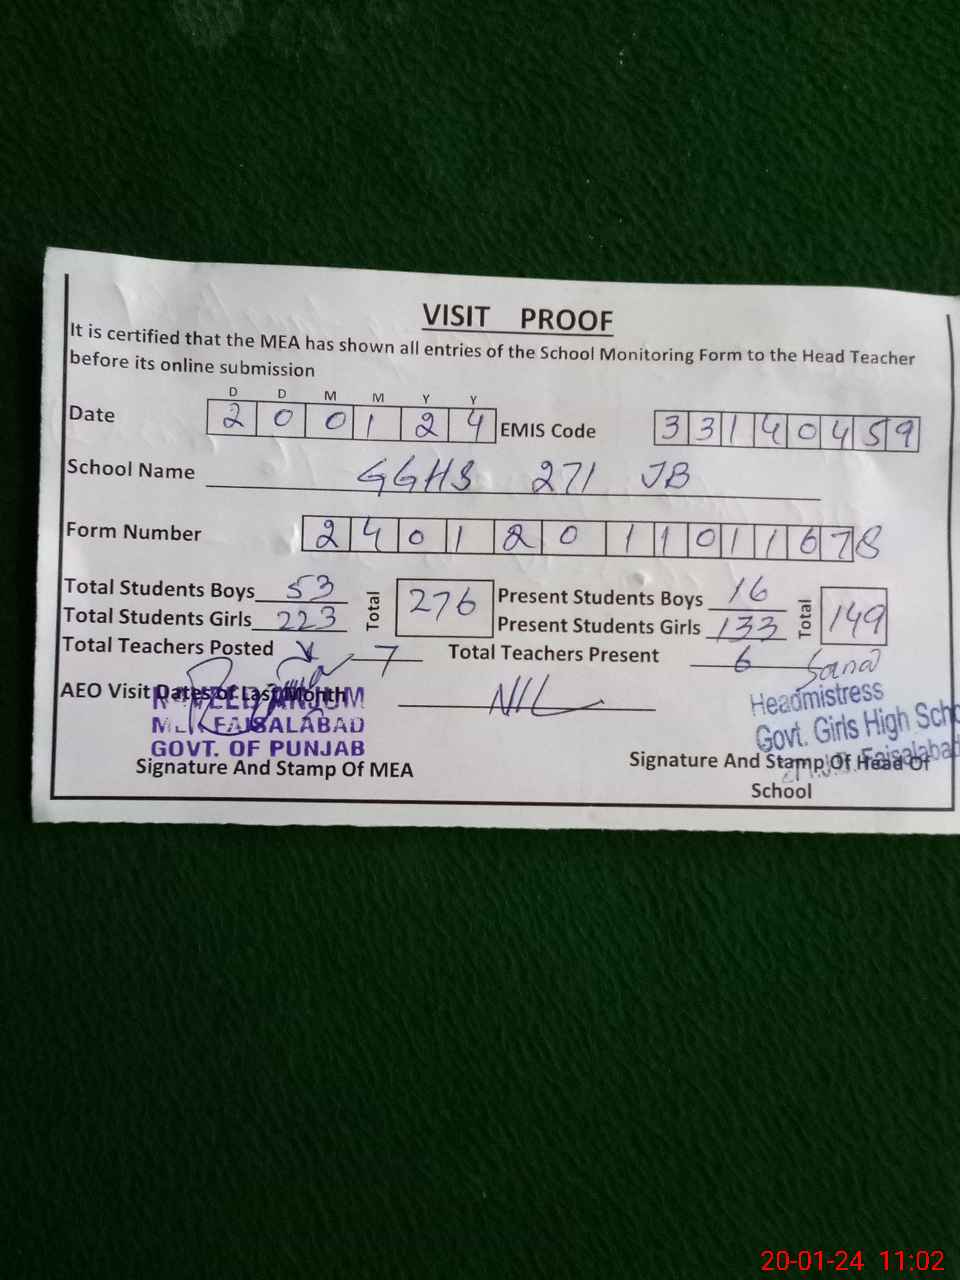 VISIT PROOF
It is certified that the MEA has shown all entries of the School Monitoring Form to the Head Teacher
before its online submission
D D M M Y Y
Date 2 0 0 1 2 4 EMIS Code 3 3 1 4 0 4 5 9
School Name GGHS 271 JB
Form Number 2 4 0 1 2 0 1 1 0 1 1 6 7 8
Total Students Boys 53 Total 276 Present Students Boys 16 Total 149
Total Students Girls 223 Present Students Girls 133
Total Teachers Posted 7 Total Teachers Present 6
AEO Visit Dates of Last Month NIL
ANJUM
FAISALABAD
GOVT. OF PUNJAB
Signature And Stamp Of MEA
Sana
Headmistress
Govt. Girls High Scho
Faisalabad
Signature And Stamp Of Head Of
School
20-01-24 11:02